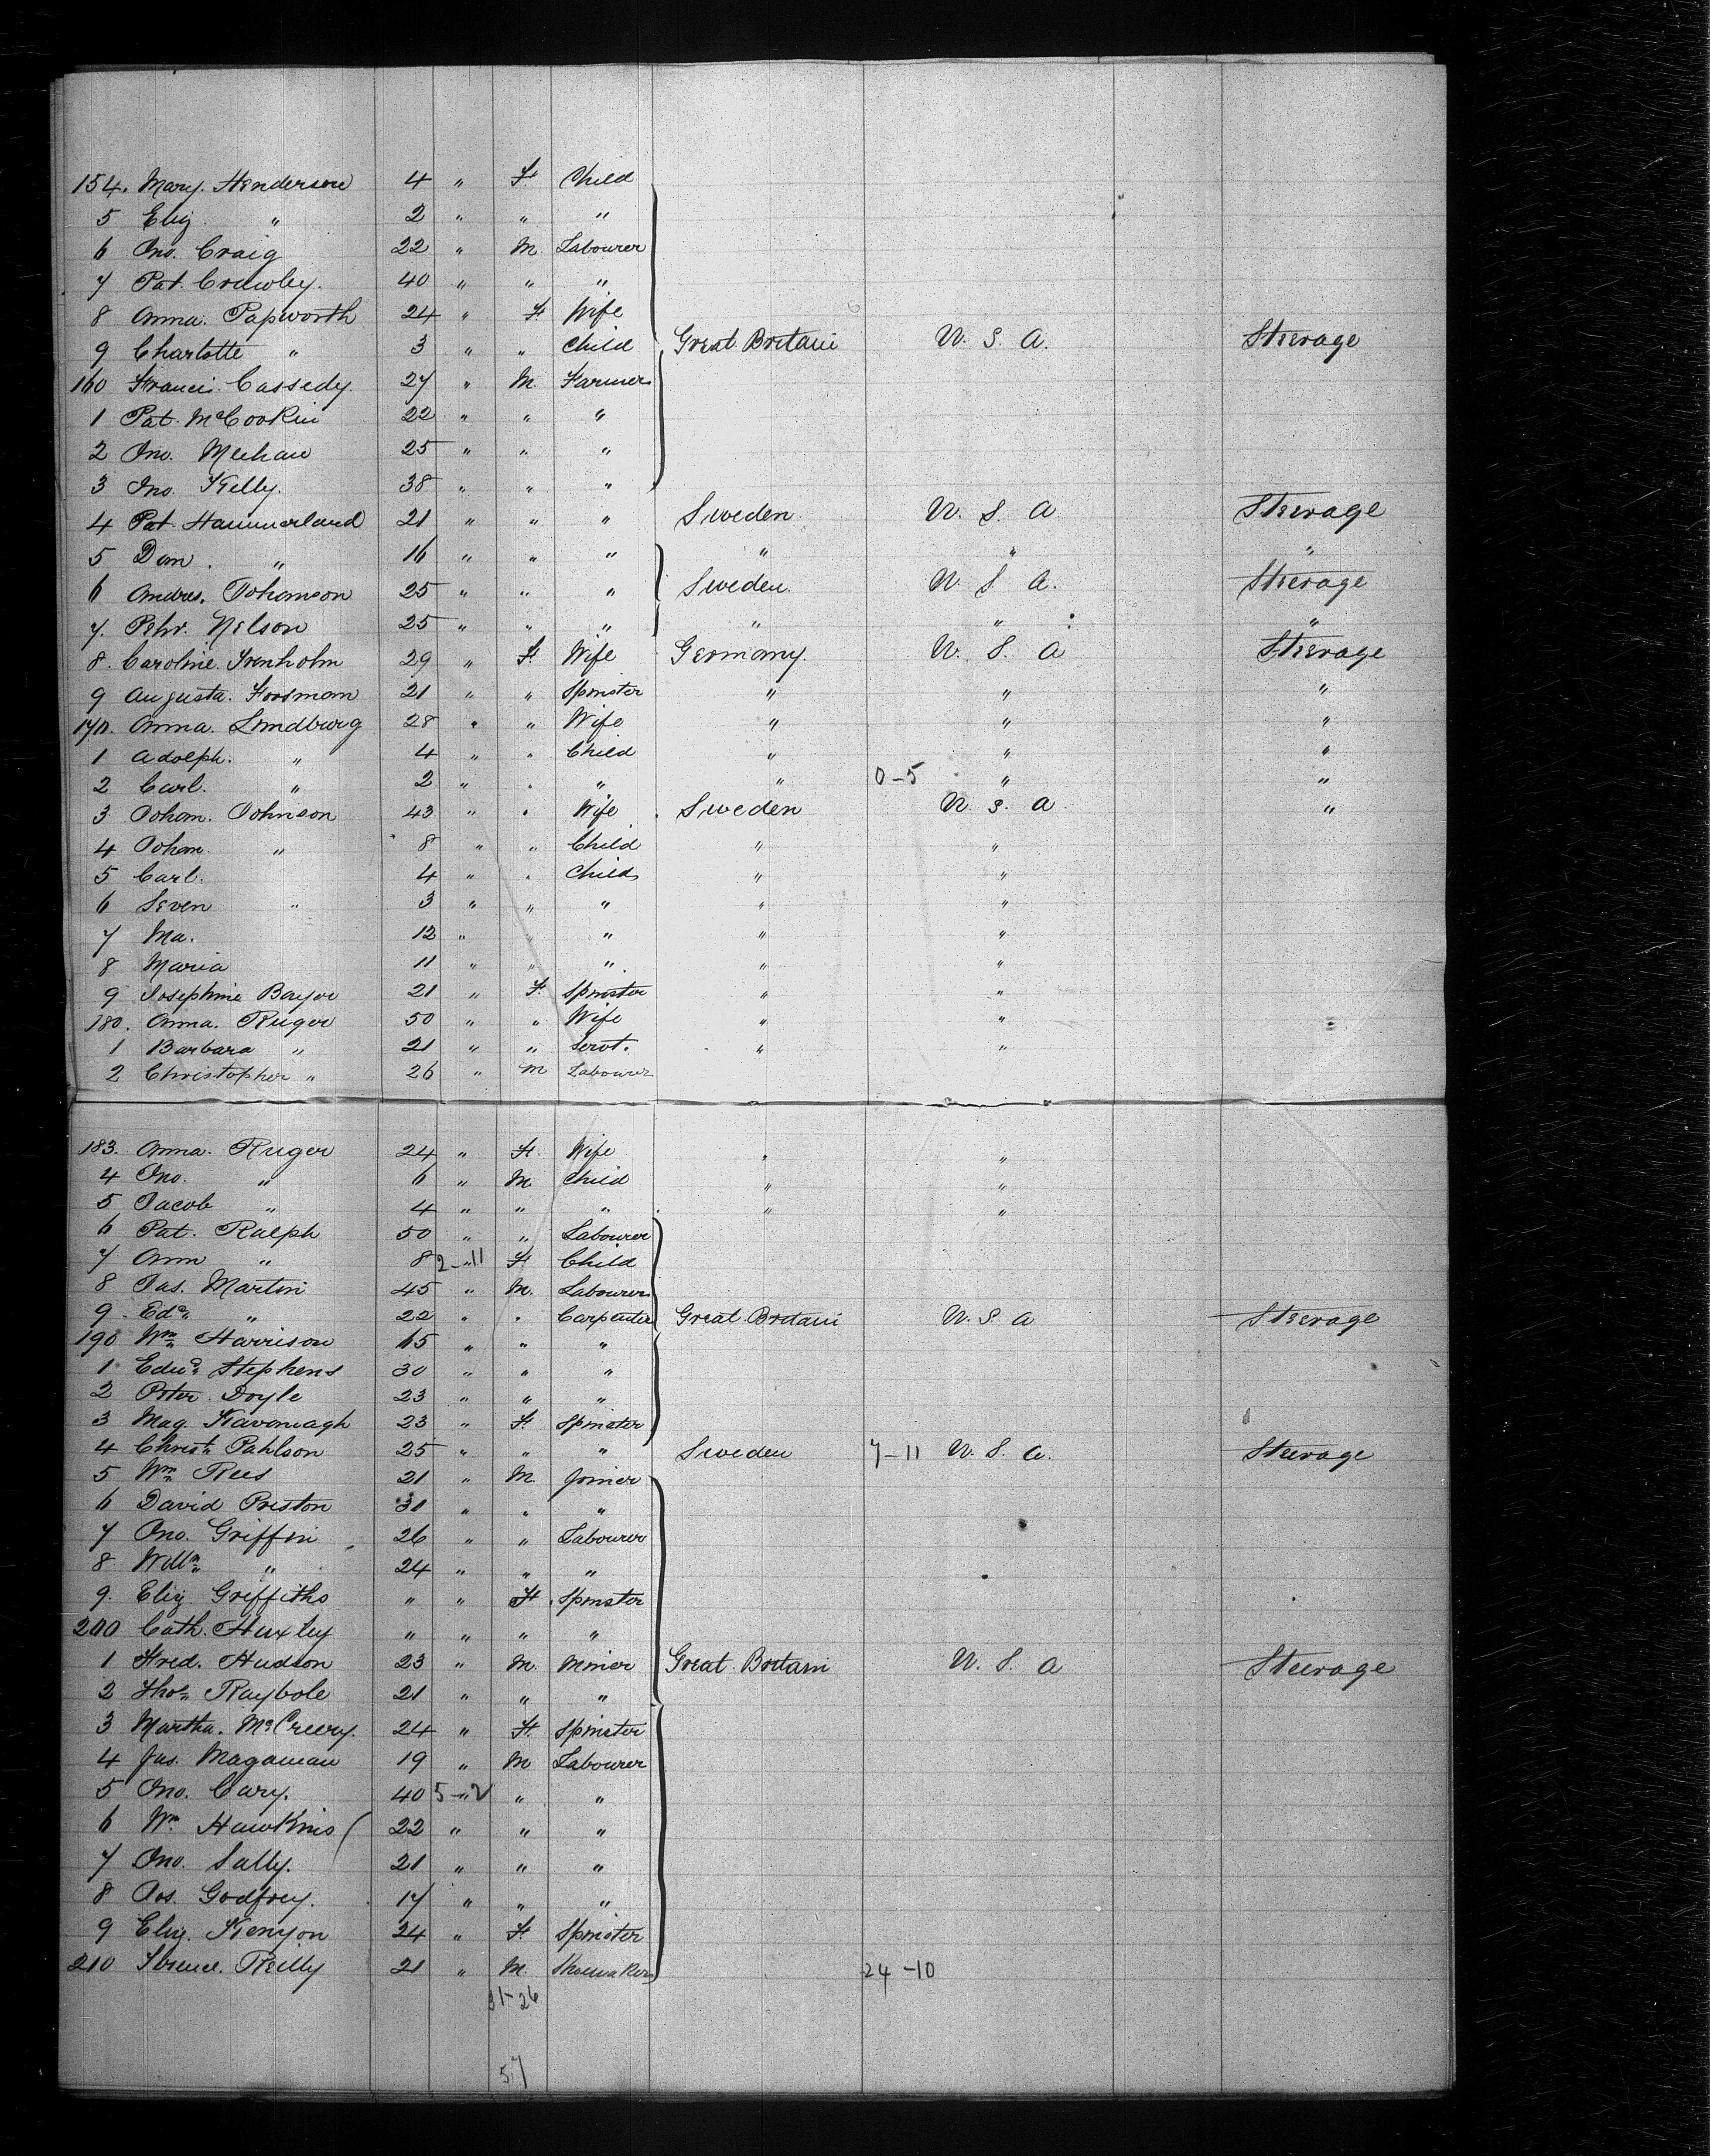 154. Mary. Henderson 4 " F. Child
5 Eliz. " 2 " " "
6 Jno. Craig 22 " M. Labourer
7 Pat. Crowley. 40 " " "
8 Anna. Papworth 24 " F. Wife
9 Charlotte " 3 " " Child Great Britain U. S. A. Steerage
160 Francis Cassedy 27 " M. Farmer
1 Pat. McCookin 22 " " "
2 Jno. Meehan 25 " " "
3 Jno. Kelly. 38 " " "
4 Pat. Hammerland 21 " " " Sweden U. S. A Steerage
5 Dan. " 16 " " " " " "
6 Andres. Johanson 25 " " " Sweden. U. S. A. Steerage
7. Pehr. Nelson 25 " " " " " "
8. Caroline. Svenholm 29 " F. Wife Germany. U. S. A Steerage
9 Augusta. Fossman 21 " " Spinster " " "
170. Anna. Lindburg 28 " " Wife " " "
1 Adolph. " 4 " " Child " " "
2 Carl. " 2 " " " " 0-5 " "
3 Johan. Johnson 43 " " Wife Sweden U. S. A. "
4 Johan. " 8 " " Child " "
5 Carl. 4 " " Child " "
6 Seven " 3 " " " " "
7 Ma. 12 " " " " "
8 Maria 11 " " " " "
9 Josephine Bayor 21 " F. Spinster " "
180. Anna. Ruger 50 " " Wife " "
1 Barbara " 21 " " Servt. " "
2 Christopher " 26 " M Labourer
183. Anna. Ruger 24 " F. Wife " "
4 Jno. " 6 " M. Child " "
5 Jacob " 4 " " " " "
6 Pat. Ralph 50 " " Labourer
7 Ann " 8 2-11 " F. Child
8 Jas. Martin 45 " M. Labourer
9. Edd. " 22 " " Carpenter Great Britain U. S. A Steerage
190 Wm Harrison 65 " " "
1 Edwd. Stephens 30 " " "
2 Peter Doyle 23 " " "
3 Mag. Kavanagh 23 " F. Spinster
4 Christn Pahlson 25 " " " Sweden 7-11 U. S. A. Steerage
5 Wm Rees 21 " M. Joiner
6 David Preston 31 " " "
7 Jno. Griffin 26 " " Labourer
8 Willm " 24 " " "
9. Eliz Griffiths " " F. Spinster
200 Cath. Huxley " " " "
1 Fred. Hudson 23 " M. Miner Great Britain U. S. A Steerage
2 Thos. Raybole 21 " " "
3 Martha. McCreery. 24 " F. Spinster
4 Jas. Magaman 19 " M Labourer
5 Jno. Cary. 40 5-2 " " "
6 Wm. Hawkins 22 " " "
7 Jno. Sally. 21 " " "
8 Jos. Godfrey. 17 " " "
9 Eliz. Kenyon 24 " F. Spinster
210 Reilly 21 " M. Shoemaker 24-10
31-26
57